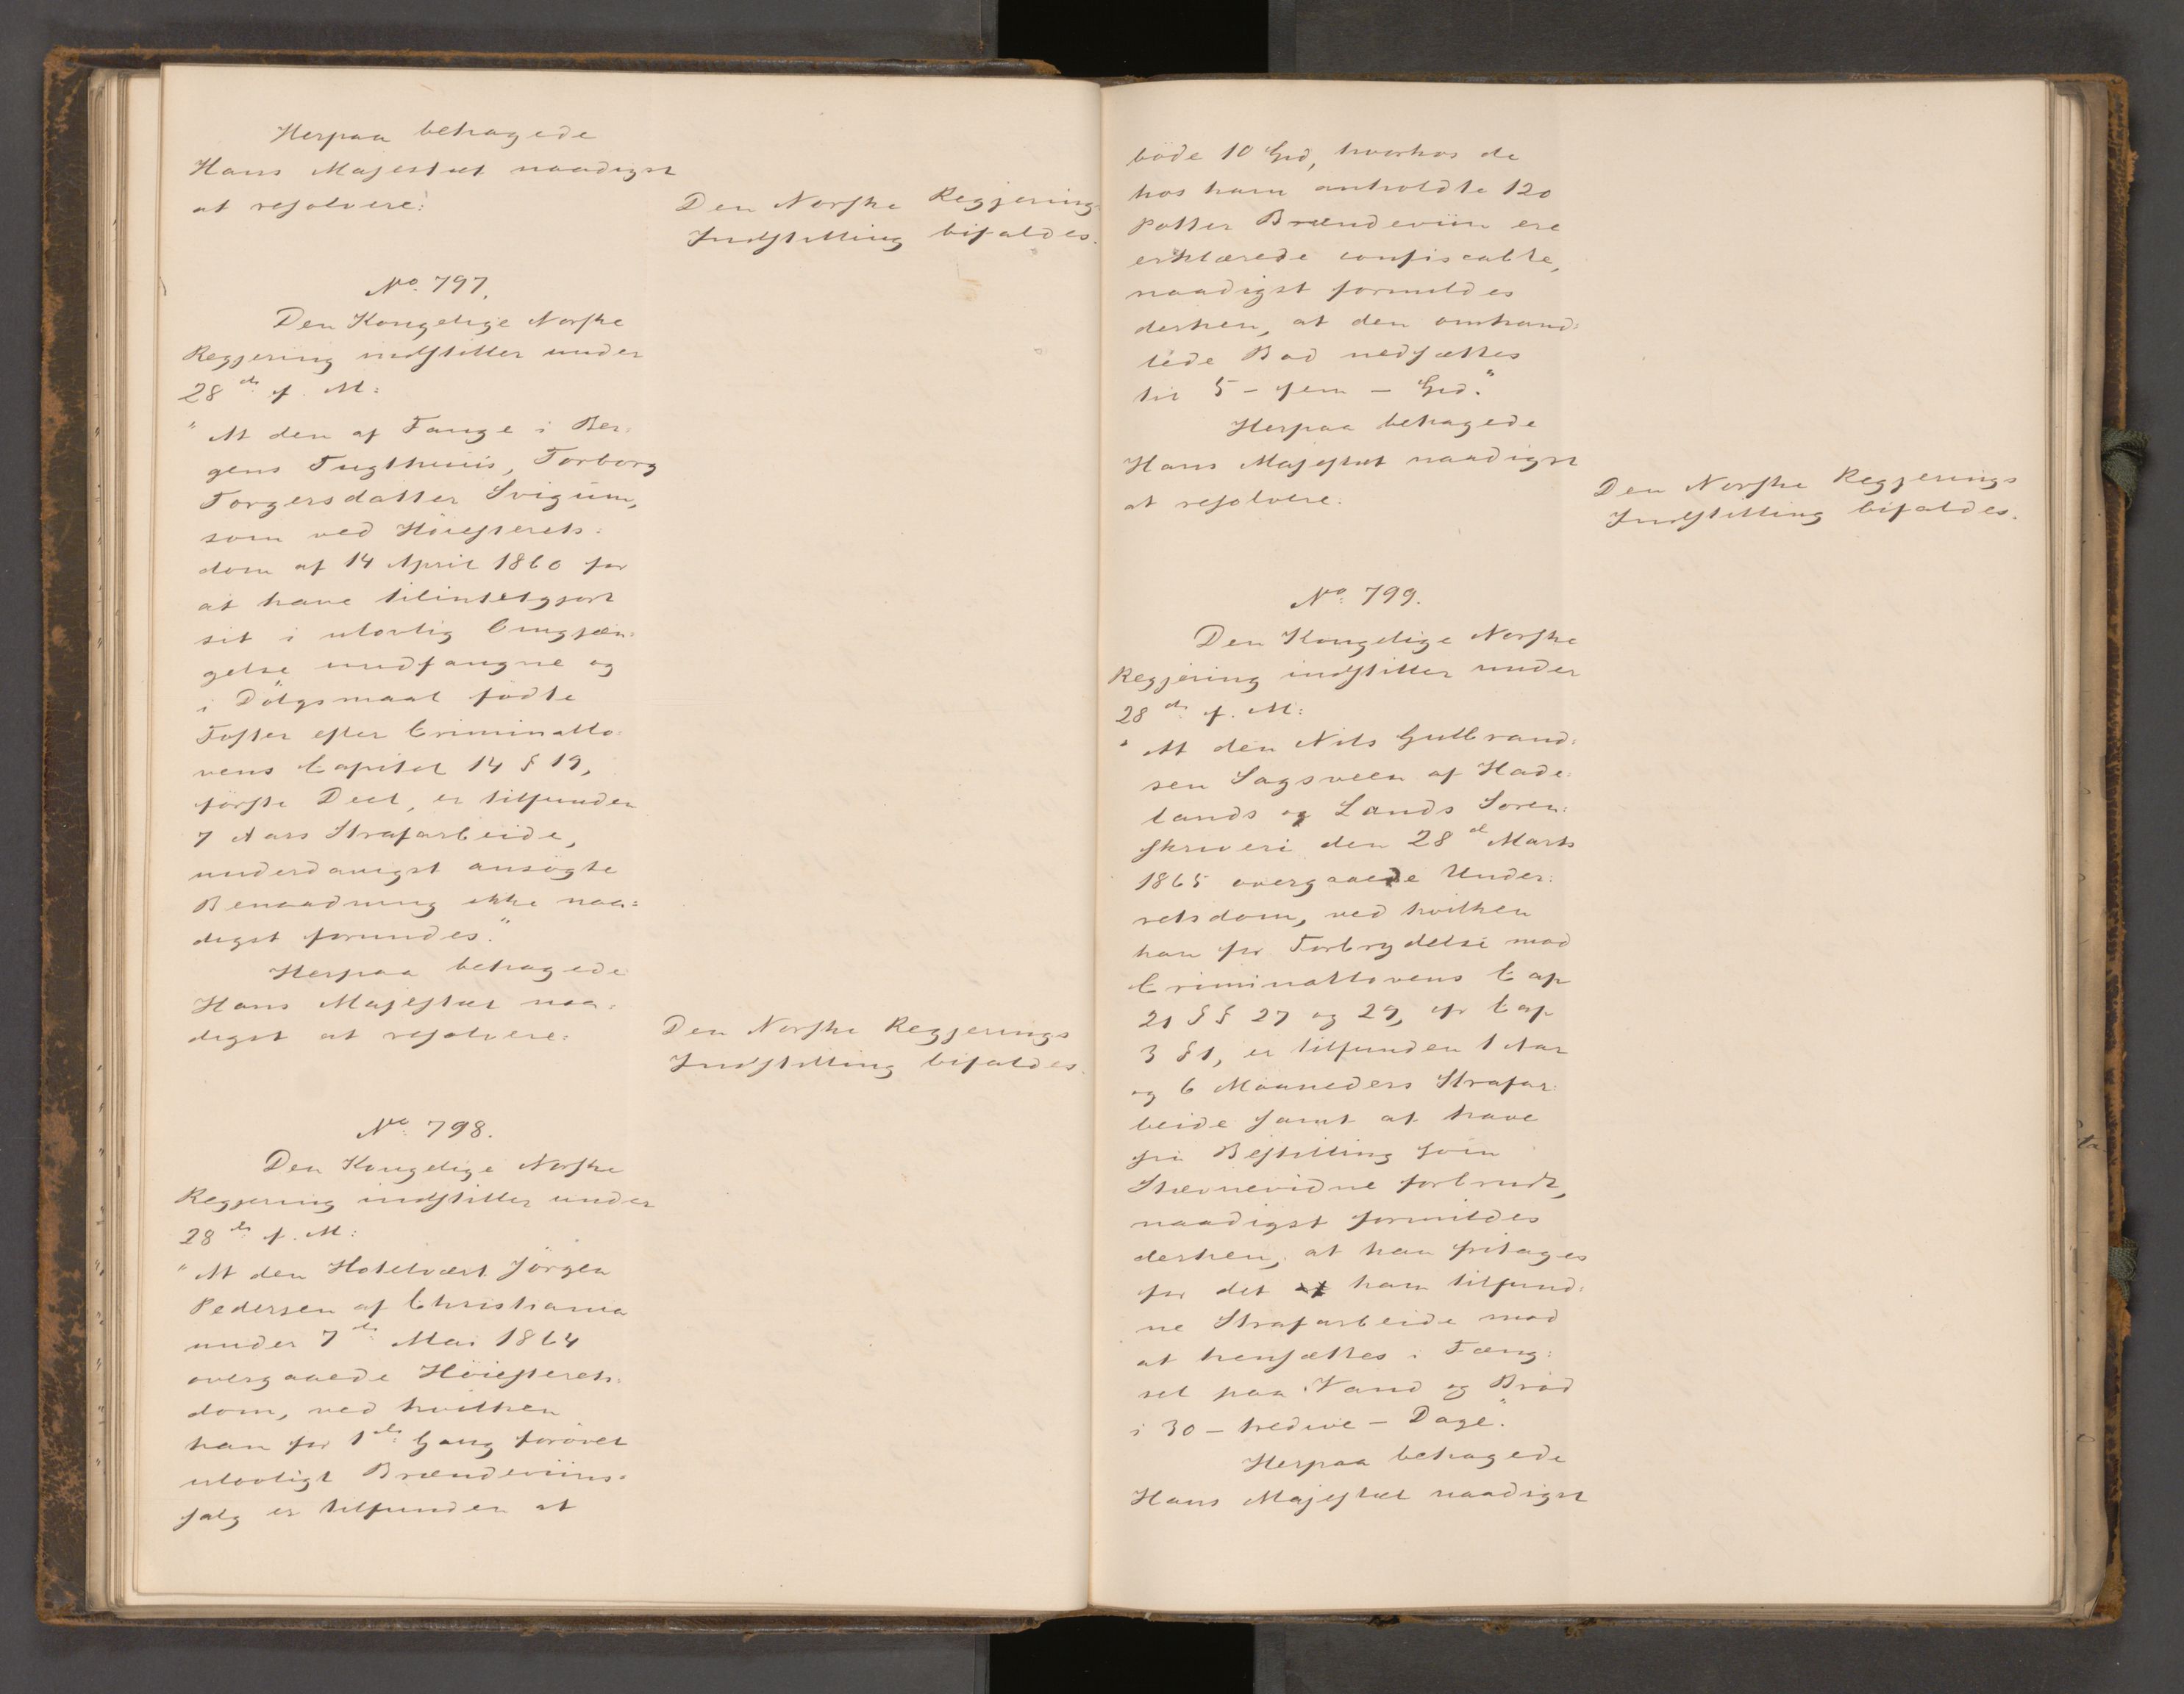 Herpaa behagede
Hans Majestæt naadigst
at resolvere:
Den Norske Regjerings
Indstilling bifaldes.
No. 797.
Den Kongelige Norske
Regjering indstiller under
28de f. M:
"At den af Fange i Ber-
gens Tugthuus, Torborg
Torgersdatter Svigum,
som ved Høiesterets-
dom af 14 April 1860 for
at have tilintetgjort
sit i ulovlig Omgjæn-
gelse undfangne og
i Dölgsmaal födte
Foster efter Criminallo-
vens Capitel 14 § 19,
förste Deel, er tilfunden
7 Aars Strafarbeide,
underdanigst ansögte
Benaadning ikke naa-
digst forundes."
Herpaa behagede
Hans Majestæt naa-
digst at resolvere:
Den Norske Regjerings
Indstilling bifaldes.
No. 798.
Den Kongelige Norske
Regjering indstiller under
28de f. M:
"At den Hotelvært Jörgen
Pedersen af Christiania
under 7de Mai 1864
overgaaede Höiesterets-
dom, ved hvilken
han for 1ste Gang forövet
ulovligt Brændeviins-
salg er tilfunden at
böde 10 Spd, hvorhos de
hos ham anholdte 120
Potter Brændeviin ere
erklærede confiscable,
naadigst formildes
derhen, at den omhand-
lede Bod nedsættes
til 5 - fem - Spd."
Herpaa behagede
Hans Majestæt naadigst
at resolvere:
Den Norske Regjerings
Indstilling bifaldes.
No. 799.
Den Kongelige Norske
Regjering indstiller under
28de f. M:
"At den Nils Gulbrand-
sen Sagsveen af Hade-
lands og Lands Soren-
skriveri den 28de Marts
1865 overgaaede Under-
retsdom, ved hvilken
han for Forbrydelse mod
Criminallovens Cap
21 §§ 27 og 29, cfr Cap
3 § 1, er tilfunden 1 Aar
og 6 Maaneders Strafar-
beide samt at have
sin Bestilling som
Stævnevidne forbrudt,
naadigst formildes
derhen, at han fritages
for det ham tilfund-
ne Strafarbeide mod
at hensættes i Fæng-
sel paa Vand og Bröd
i 30 - tredive - Dage."
Herpaa behagede
Hans Majestæt naadigst